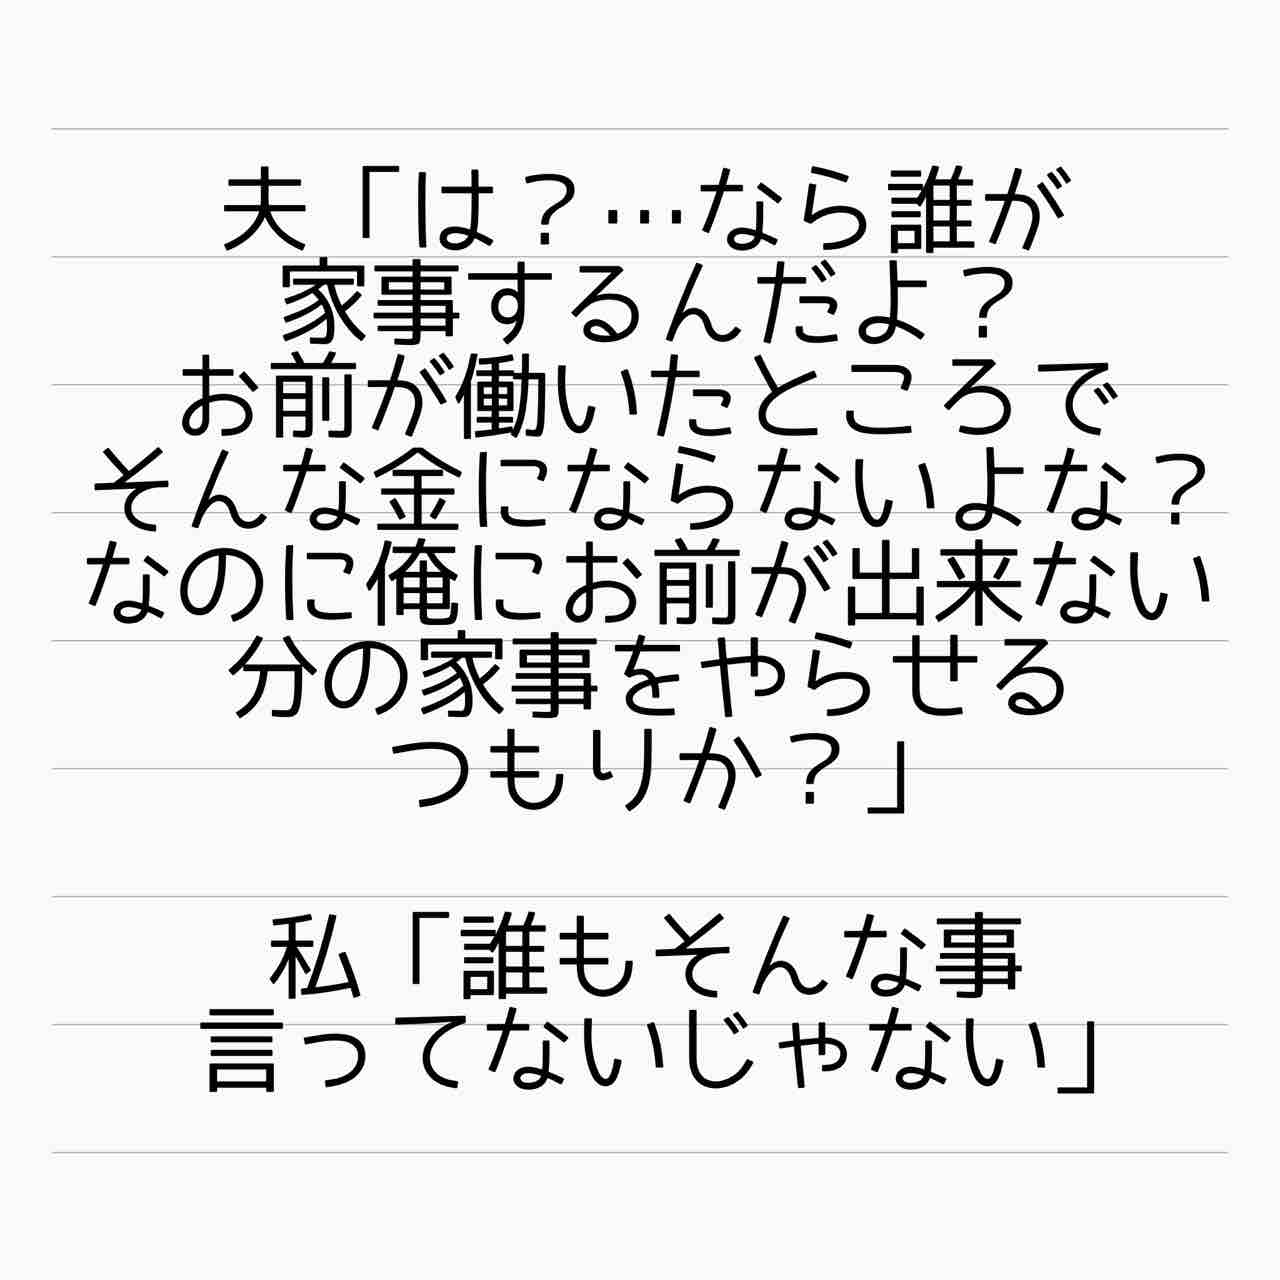 夫「は？…なら誰が
家事するんだよ？
お前が働いたところで
そんな金にならないよな？
なのに俺にお前が出来ない
分の家事をやらせる
つもりか？」
私「誰もそんな事
言ってないじゃない」